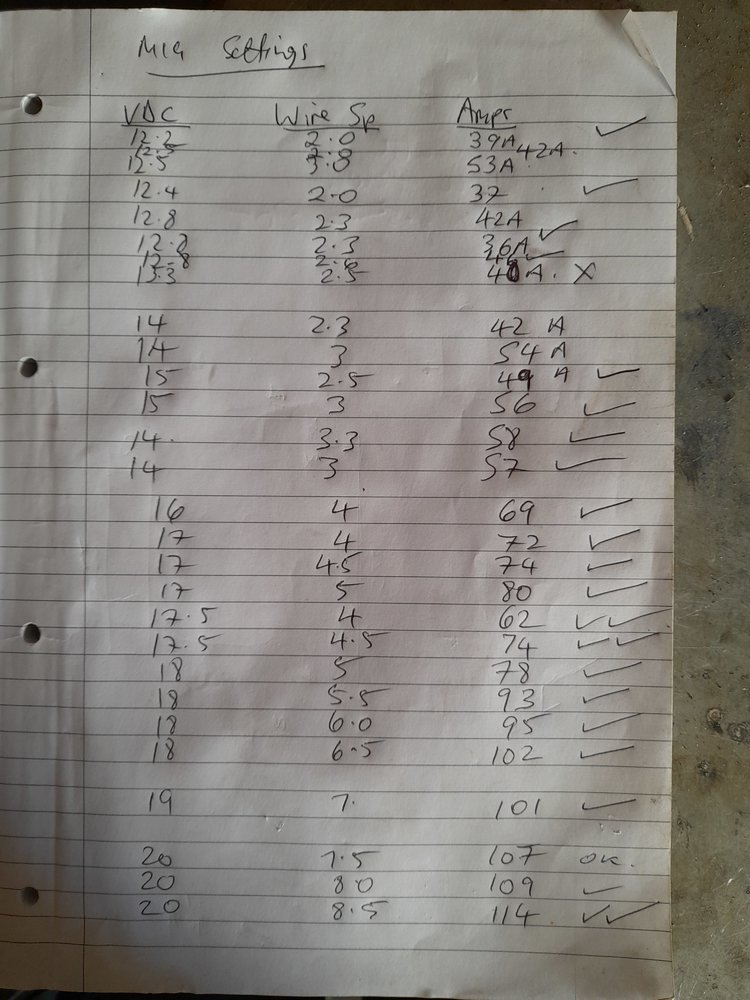 MIG Settings
VDC Wire Sp Amps
12.2 2.0 39A ✓
42A.
12.5 3.0 53A
12.4 2.0 37 ✓
12.8 2.3 42A
2.3 36A ✓
12.8 ✓
13.3 2.5 A. X
14 2.3 42 A
14 3 54 A
15 2.5 49 A ✓
15 3 56 ✓
14. 3.3 58 ✓
14 3 57 ✓
16 4 69 ✓
17 4 72 ✓
17 4.5 74 ✓
17 5 80 ✓
17.5 4 62 ✓✓
17.5 4.5 74 ✓✓
18 5 78 ✓
18 5.5 93 ✓
18 6.0 95 ✓
18 6.5 102 ✓
19 7. 101 ✓
20 7.5 107 OK.
20 8.0 109 ✓
20 8.5 114 ✓✓